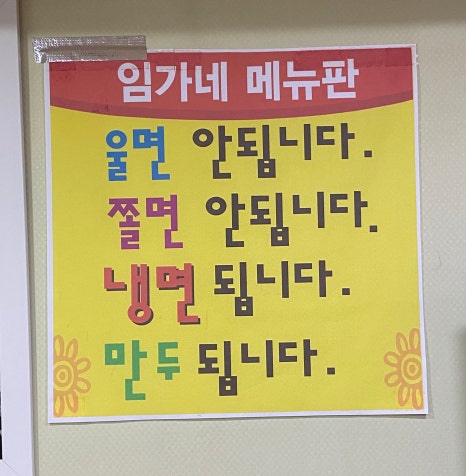 임가네 메뉴판
울면 안됩니다.
쫄면 안됩니다.
냉면 됩니다.
만두 됩니다.